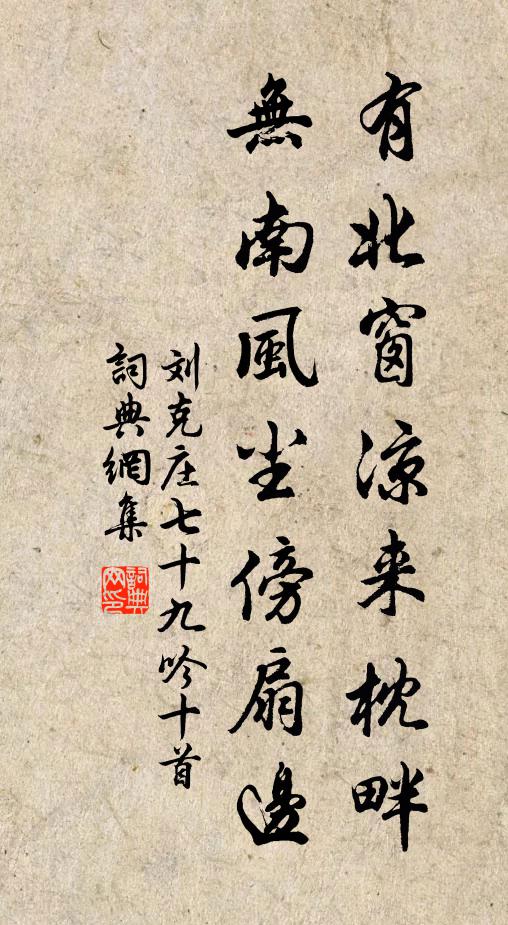 有北窗凉来枕畔
無南風尘傍扇邊
刘克庄七十九吟十首
詞典網集
詞典网印